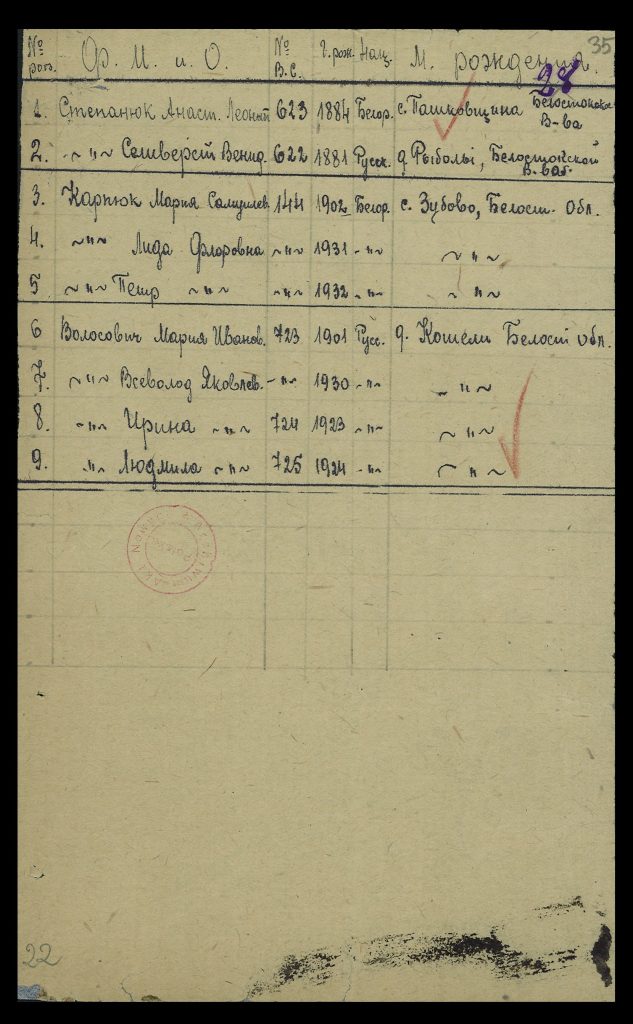 35
№ Ф. И. и. О. № В.С. г. рож. Нац. М. рождения.
28
1. Степанюк Анаст. Леонт 623 1884 Белор. с. Пашковщина Белостокск. В-ва
2. ~ " ~ Селиверст Венид. 622 1881 Русск. д. Рыболы, Белостокской В-ва.
3. Карпюк Мария Самуилев. 144 1902 Белор. с. Зубово, Белост. Обл.
4. ~ " ~ Лида Флоровна ~ " ~ 1931 - " - ~ " ~
5 ~ " ~ Петр ~ " ~ ~ " ~ 1932 - " - ~ " ~
6 Волосович Мария Иванов. 723 1901 Русс. д. Кошели Белост обл.
7. ~ " ~ Всеволод Яковлев. - " - 1930 - " - ~ " ~
8. ~ " ~ Ирина ~ " ~ 724 1923 - " - ~ " ~
9. ~ " ~ Людмила ~ " ~ 725 1924 - " - ~ " ~
22